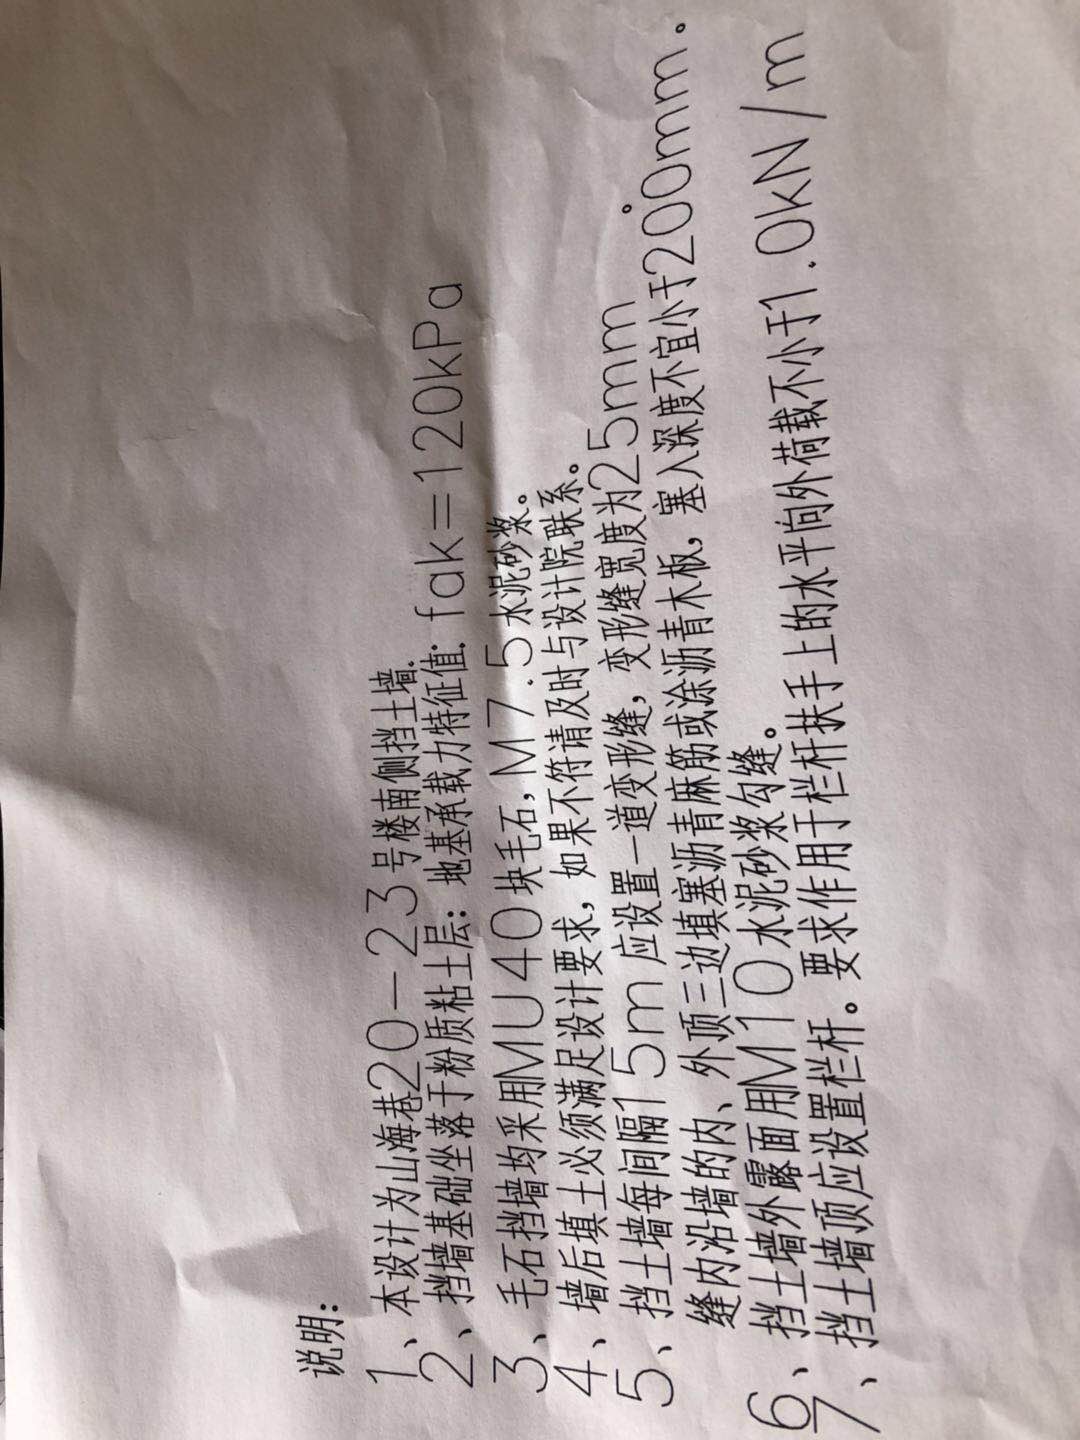 说明：
1、本设计为山海巷20-23号楼南侧挡土墙.
2、挡墙基础坐落于粉质粘土层：地基承载力特征值：fak=120kPa
3、毛石挡墙均采用MU40块毛石,M7.5水泥砂浆。
4、墙后填土必须满足设计要求，如果不符请及时与设计院联系。
5、挡土墙每间隔15m应设置一道变形缝，变形缝宽度为25mm。
缝内沿墙的内、外顶三边填塞沥青麻筋或涂沥青木板，塞入深度不宜小于200mm.。
6、挡土墙外露面用M10水泥砂浆勾缝。
7、挡土墙顶应设置栏杆。要求作用于栏杆扶手上的水平向外荷载不小于1.0kN/m